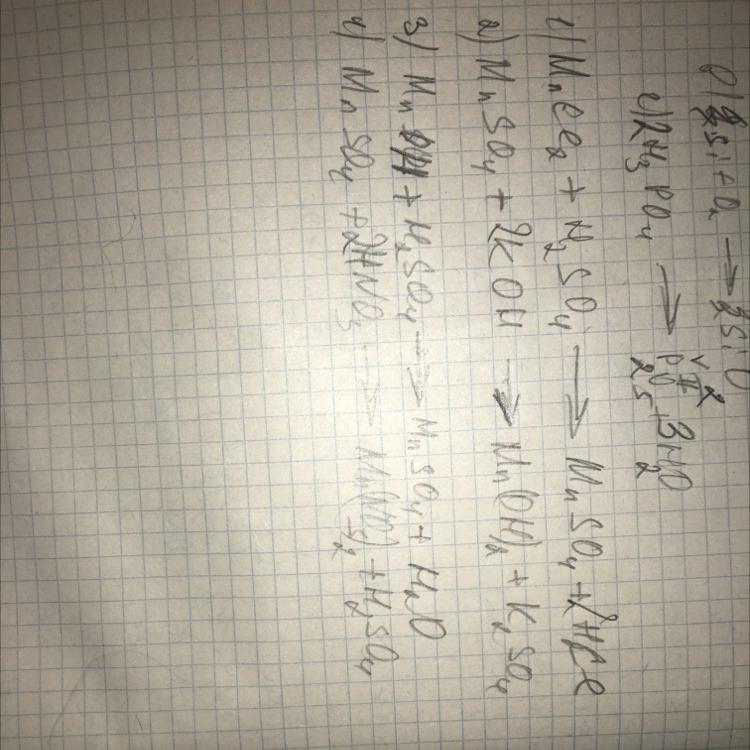 Si + O₂ → SiO₂
2H₃PO₄ → P₂O₅ + 3H₂O
1) MnCl₂ + H₂SO₄ → MnSO₄ + 2HCl
2) MnSO₄ + 2KOH → Mn(OH)₂ + K₂SO₄
3) Mn + H₂SO₄ → MnSO₄ + H₂O
4) MnSO₄ + 2HNO₃ → Mn(NO₃)₂ + H₂SO₄